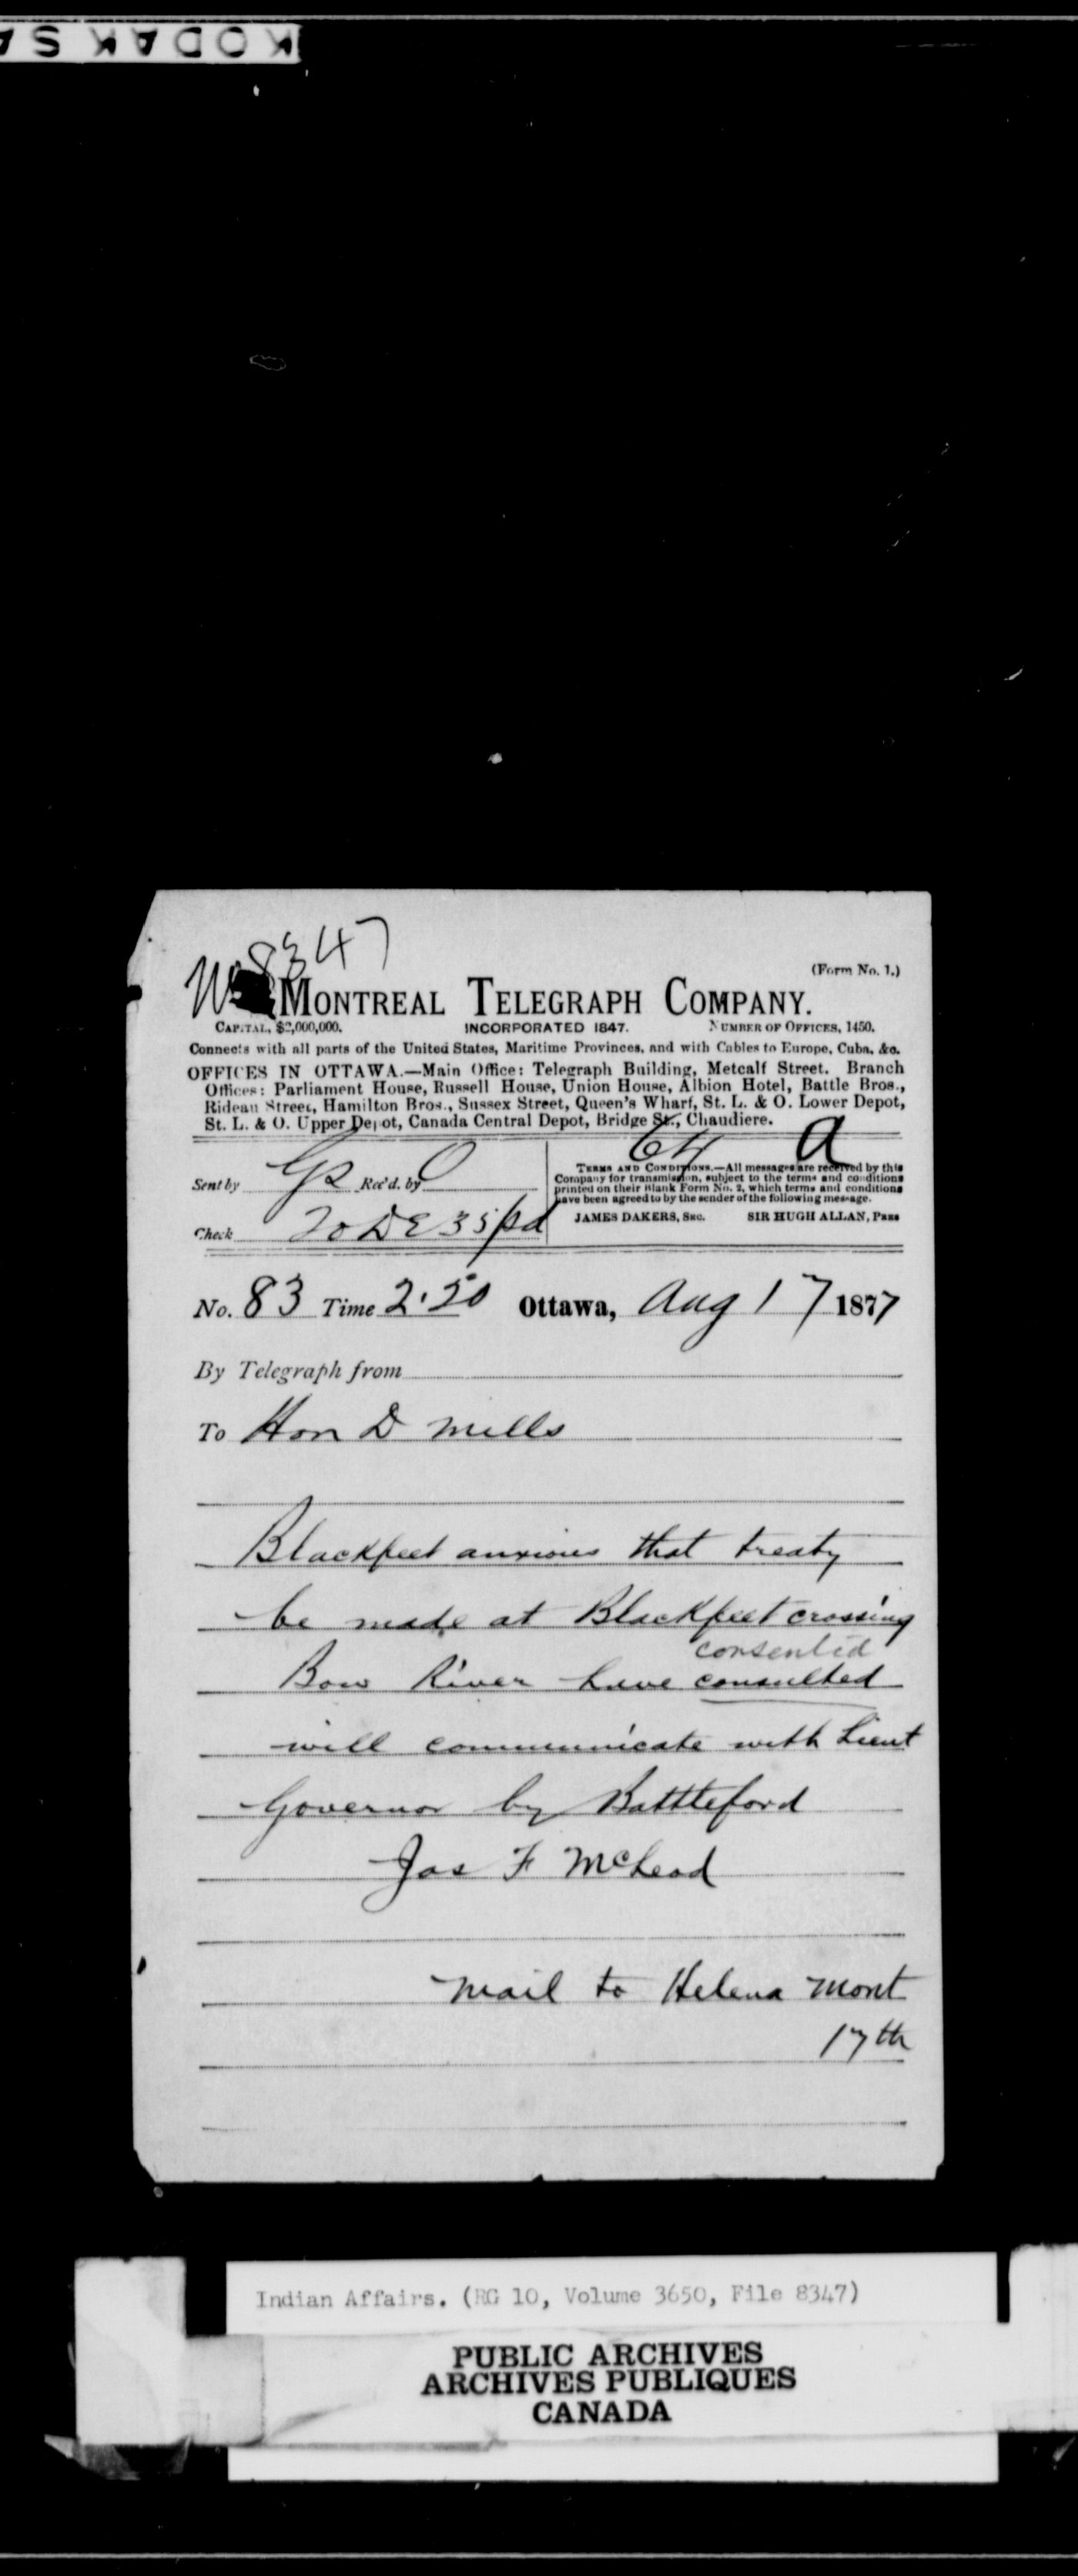 KODAK SA
8347
(Form No. 1.)
MONTREAL TELEGRAPH COMPANY.
CAPITAL, $2,000,000. INCORPORATED 1847. NUMBER OF OFFICES, 1450.
Connects with all parts of the United States, Maritime Provinces, and with Cables to Europe, Cuba, &c.
OFFICES IN OTTAWA.—Main Office: Telegraph Building, Metcalf Street. Branch
Offices: Parliament House, Russell House, Union House, Albion Hotel, Battle Bros.,
Rideau Street, Hamilton Bros., Sussex Street, Queen's Wharf, St. L. & O. Lower Depot,
St. L. & O. Upper Depot, Canada Central Depot, Bridge St., Chaudiere.
64 a
Sent by Rec'd. by
TERMS AND CONDITIONS.—All messages are received by this
Company for transmission, subject to the terms and conditions
printed on their Blank Form No. 2, which terms and conditions
have been agreed to by the sender of the following message.
JAMES DAKERS, SEC. SIR HUGH ALLAN, PRES
Check 20 DE 35 pd
No. 83 Time 2.50 Ottawa, Aug 17 1877
By Telegraph from
To Hon D Mills
Blackfeet anxious that treaty
be made at Blackfeet crossing
consented
Bow River have consulted
will communicate with Lieut
Governor by Battleford
Jas F McLeod
Mail to Helena Mont
17th
Indian Affairs. (RG 10, Volume 3650, File 8347)
PUBLIC ARCHIVES
ARCHIVES PUBLIQUES
CANADA